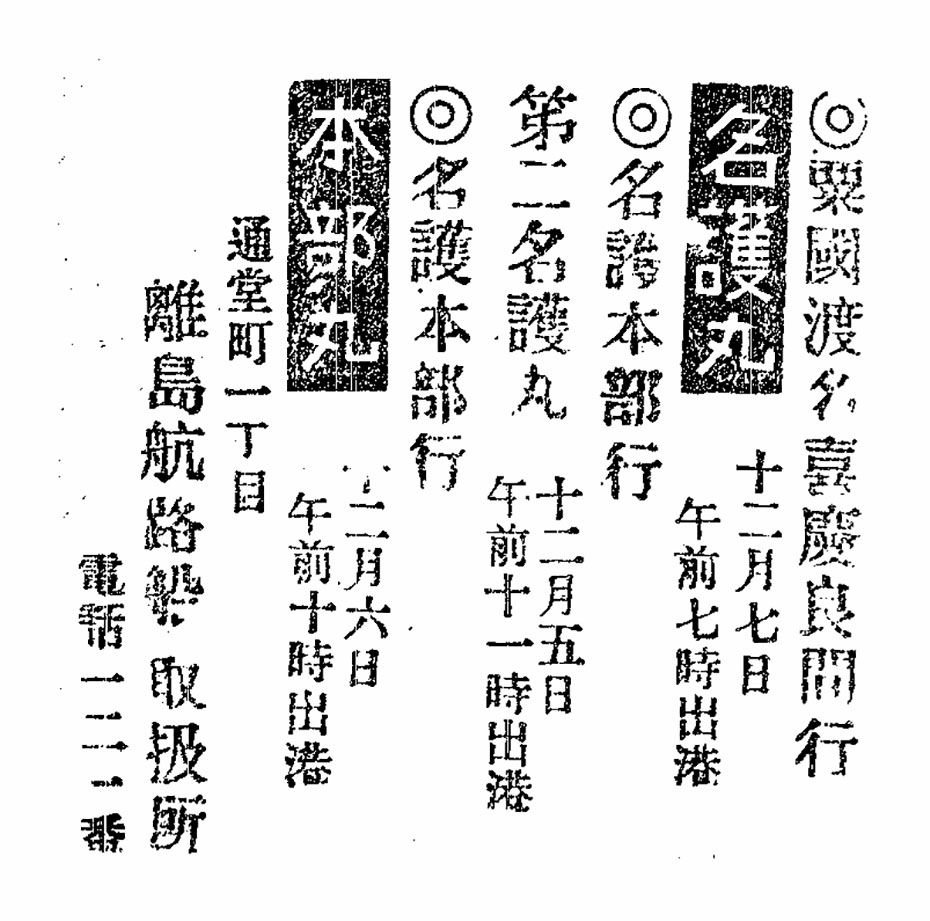 ◎粟國渡名喜慶良間行
名護丸
十二月七日
午前七時出港
◎名護本部行
第二名護丸
十二月五日
午前十一時出港
◎名護本部行
本部丸
十二月六日
午前十時出港
通堂町一丁目
離島航路船 取扱所
電話一二一番